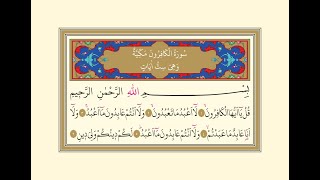 سُورَةُ الْكَافِرُونَ مَكِّيَّةٌ
وَهِيَ سِتُّ اٰيَاتٍ
بِسْمِ اللّٰهِ الرَّحْمٰنِ الرَّحِيمِ
قُلْ يَٓا اَيُّهَا الْكَافِرُونَۙ لَٓا اَعْبُدُ مَا تَعْبُدُونَۙ وَلَٓا اَنْتُمْ عَابِدُونَ مَٓا اَعْبُدُۚ وَلَٓا
اَنَا۬ عَابِدٌ مَا عَبَدْتُمْۙ وَلَٓا اَنْتُمْ عَابِدُونَ مَٓا اَعْبُدُۜ لَكُمْ دِينُكُمْ وَلِيَ دِينِ